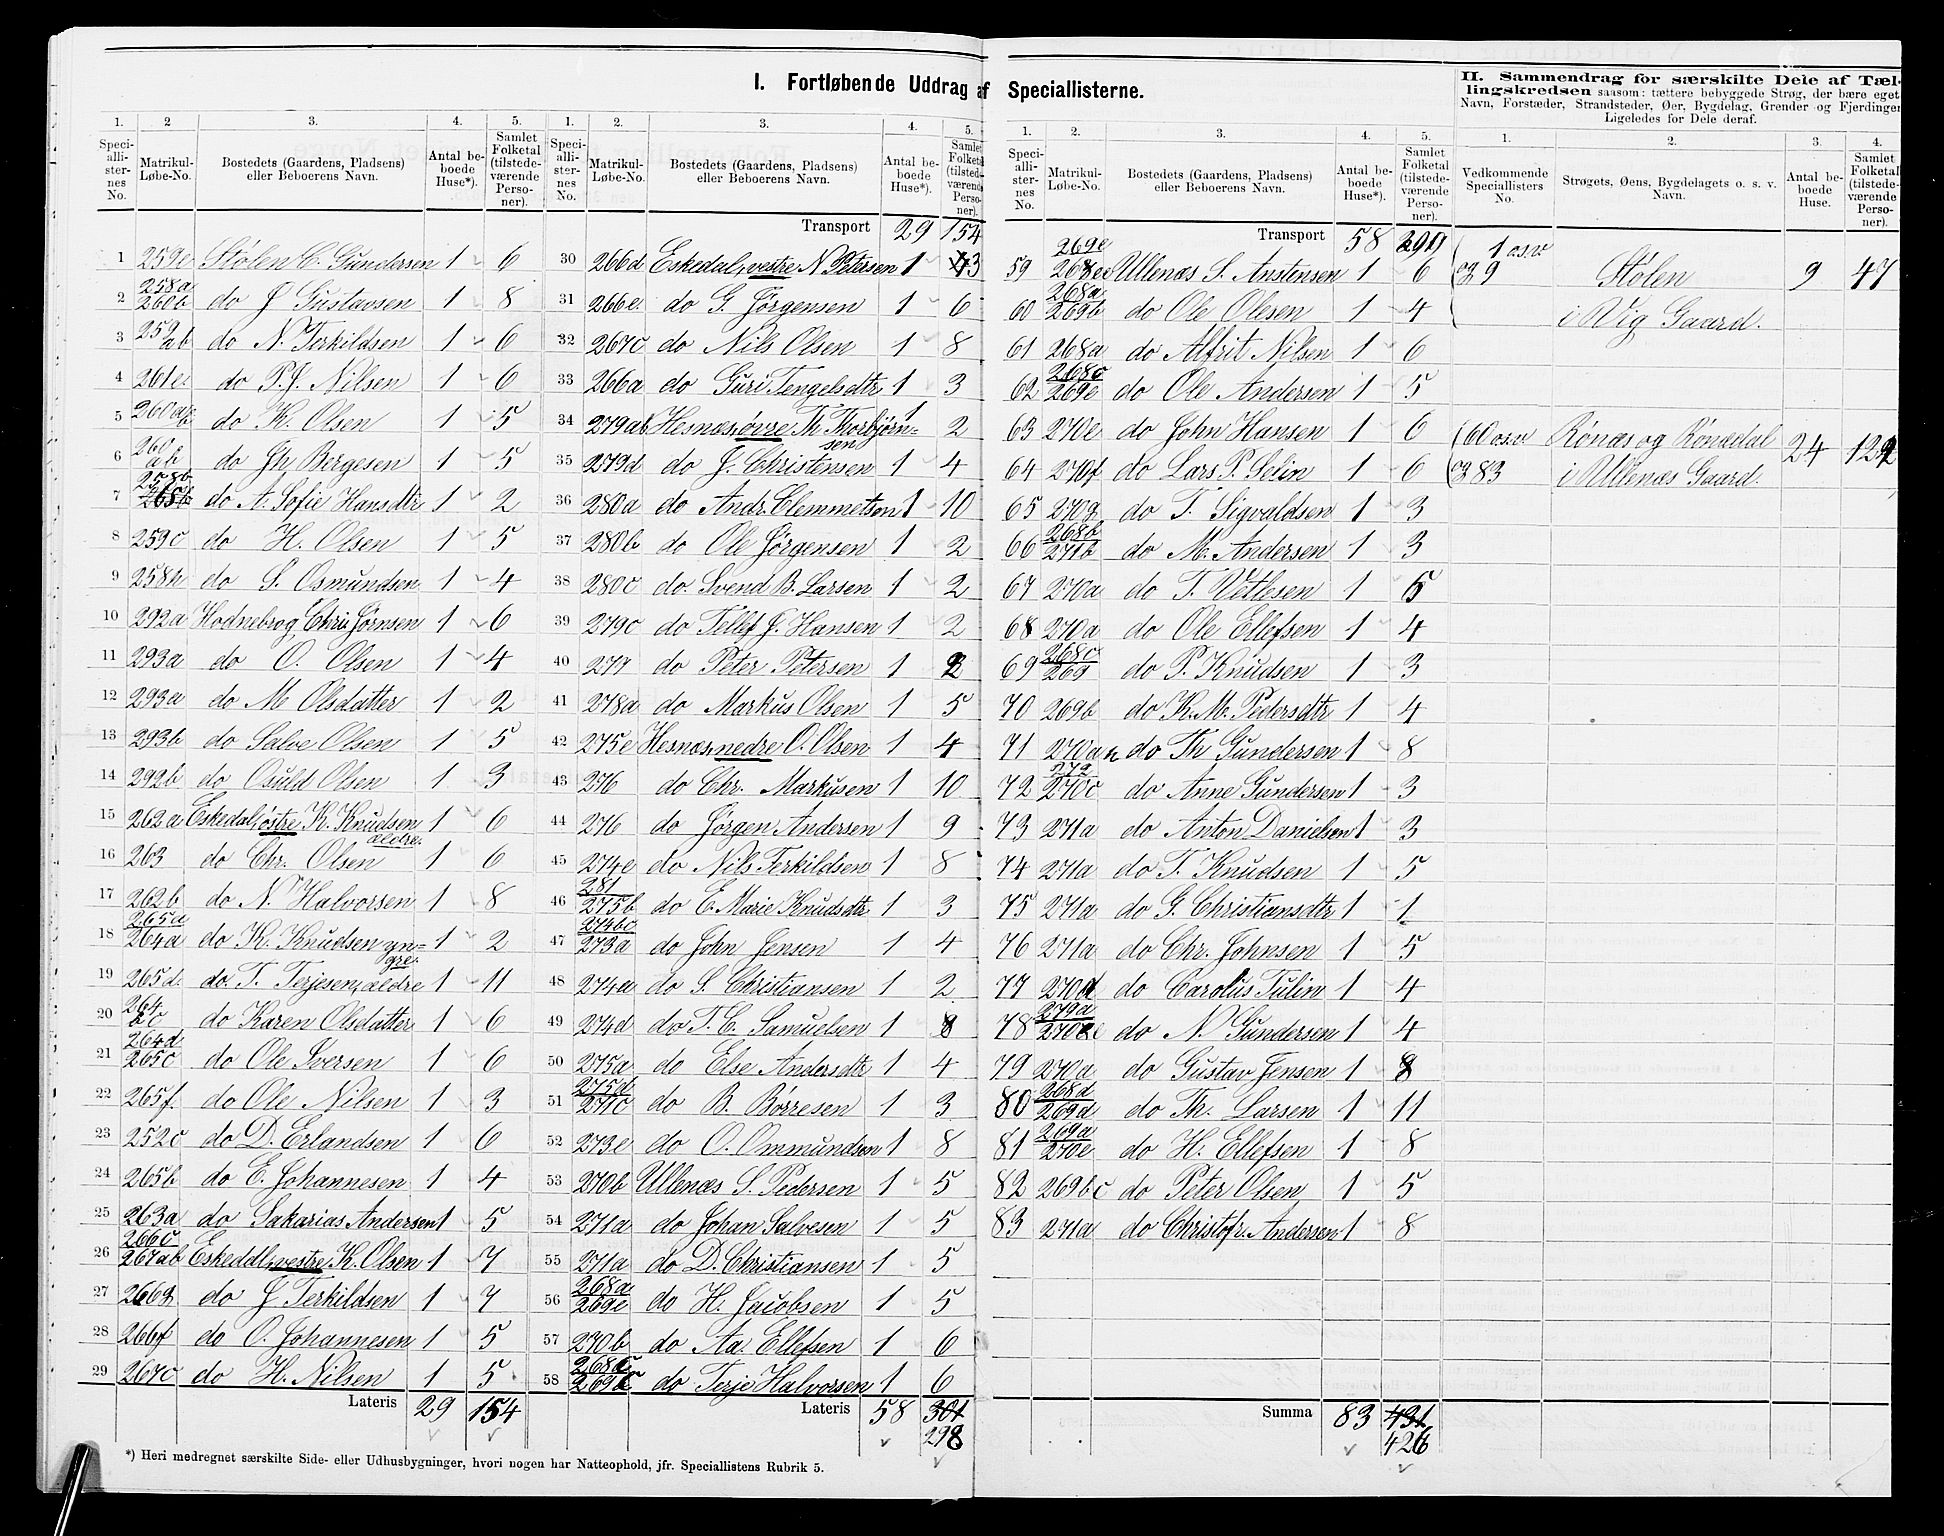 I. Fortløbende Uddrag af Speciallisterne.
II. Sammendrag for særskilte Dele af Tæl-
lingskredsen saasom: tættere bebyggede Strøg, der bære eget
Navn, Forstæder, Strandsteder, Øer, Bygdelag, Grender og Fjerdinger
Ligeledes for Dele deraf.
1. 2 3. 4. 5.
Speci-alli-ster-nes No. Matrikul-Løbe-No. Bostedets (Gaardens, Pladsens) eller Beboerens Navn. Antal be-boede Huse*). Samlet Folketal (tilstede-værende Perso-ner).
1 259e Stølen C. Gundersen 1 6
2 258a 260b do J Gustavsen 1 8
3 259 ab do N. Terkildsen 1 6
4 261e do P.J. Nilsen 1 6
5 260ab do K. Olsen 1 5
6 260 ab do Jh Bergesen 1 5
7 258b do A. Sofie Hansdtr 1 2
8 259c do H. Olsen 1 5
9 258h do S. Osmundsen 1 4
10 292a Hodnebrog Chri Jörnsen 1 6
11 293a do O. Olsen 1 4
12 293a do M Olsdatter 1 2
13 293b do Salve Olsen 1 5
14 292b do Osuld Olsen 1 3
15 262a Eskedal, østre K. Knudsen ældre. 1 6
16 263 do Chr. Olsen 1 6
17 262b do N. Halvorsen 1 8
18 265a 264a do K. Knudsen yn=gre. 1 2
19 265d. do. T. Terjesen, ældre 1 11
20 264 bc do Karen Olsdatter 1 6
21 264d 265c do Ole Iversen 1 6
22 265f. do Ole Nilsen 1 3
23 252c do D. Erlandsen 1 6
24 265b do E. Johannesen 1 4
25 263a do Sakarias Andersen 1 5
26 266c 267ab Eskeddl, vestre K. Olsen 1 7
27 266g do J Terkildsen 1 7
28 266f do O. Johannesen 1 5
29 267c do H. Nilsen 1 5
Lateris 29 154
*) Heri medregnet særskilte Side- eller Udhusbygninger, hvori nogen har Natteophold, jfr. Speciallistens Rubrik 5.
1. 2. 3. 4. 5.
Speci-alli-ster-nes No. Matrikul-Løbe-No. Bostedets (Gaardens, Pladsens) eller Beboerens Navn. Antal be-boede Huse*). Samlet Folketal (tilstede-værende Perso-ner).
Transport 29 154
30 266d Eskedal, vestre N Petersen 1 3
31 266e. do G. Jørgensen 1 6
32 267c do Nils Olsen 1 8
33 266a do Guri Tengelsdtr 1 3
34 279ab Hesnæs, øvre Th Thorbjörn-sen 1 2
35 279d do J. Christensen 1 4
36 280a do Andr. Clemmetsen 1 10
37 280b do Ole Jørgensen 1 2
38 280c do. Svend B. Larsen 1 2
39 279c do Tellef J. Hansen 1 2
40 279 do Peter Petersen 1 2
41 278a do Markus Olsen 1 5
42 275e Hesnæs, nedre O. Olsen 1 4
43 276 do Chr. Markusen 1 10
44 276 do Jørgen Andersen 1 9
45 274e do Nils Terkildsen 1 8
46 281 275b do E. Marie Knudsdtr 1 3
47 274bc 273a do John Jensen 1 4
48 274a do S. Christiansen 1 2
49 274d do T. C. Samuelsen 1 8
50 275a do Else Andersdtr 1 4
51 275d 271c do B. Børresen 1 3
52 273e do O. Ommundsen 1 8
53 270b Ullenæs S. Pedersen 1 5
54 271a do Johan Salvesen 1 5
55 271a do D. Christiansen 1 5
56 268a 269c do H. Jacobsen 1 5
57 270b do Aa. Ellefsen 1 6
58 do Terje Halvorsen 1 6
Lateris 58 301
298
1. 2. 3. 4. 5.
Speci-alli-ster-nes No. Matrikul-Løbe-No. Bostedets (Gaardens, Pladsens) eller Beboerens Navn. Antal be-boede Huse*). Samlet Folketal (tilstede-værende Perso-ner).
Transport 58
59 269e 268e Ullenæs S. Anstensen 1 6
60 268a 269b do Ole Olesen 1 4
61 268a do Alfrit Nilsen 1 6
62 268c 269e do Ole Andersen 1 5
63 270e do John Hansen 1 6
64 270f do Lars P. Selin 1 6
65 270g do T. Sigvaldsen 1 3
66 268b 271b do M. Andersen 1 3
67 270a do T. Vetlesen 1 5
68 270a do Ole Ellefsen 1 4
69 268c 269 do P. Knudsen 1 3
70 269b do K. M. Pedersdtr 1 4
71 270a do Th Gundersen 1 8
72 272 270c do Anne Gundersen 1 3
73 271a do Anton Danielsen 1 3
74 271a do T. Knudsen 1 5
75 271a do G. Christiansdtr 1 1
76 271a do Chr. Johnsen 1 5
77 270d do Carolus Tulin 1 4
78 279a do N. Gundersen 1 4
79 270a do Gustav Jensen 1 8
80 268d 269d do Th. Larsen 1 11
81 269a 270e do H. Ellefsen 1 8
82 269bc do Peter Olsen 1 5
83 271a do Christofr. Andersen 1 8
Summa 83 431
426
1. 2. 3. 4.
Vedkommende Speciallisters No. Strøgets, Øens, Bygdelagets o. s. v. Navn. Antal be-boede Huse. Samlet Folketal (tilstede-værende Perso-ner).
1 o.s.v
9 Stølen 9 47
i Vig Gaard.
60 o.s.v Rönæs og Rönædal 24 122
83 i Ullenæs Gaard.